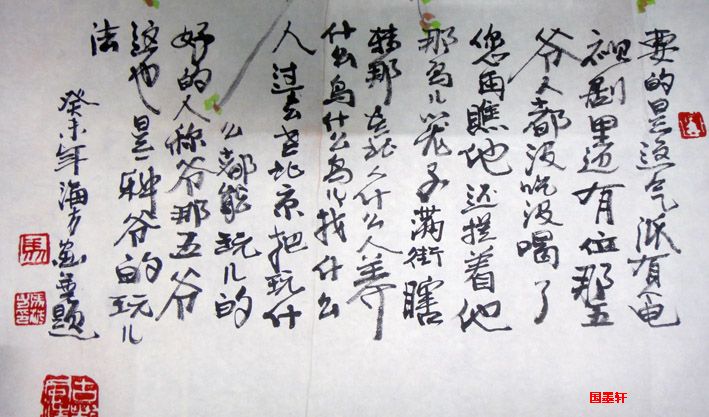 要的是这气派有电
视剧里边有位那五
爷又都没吃没喝了
您再瞧他还提着他
那鸟儿笼子满街瞎
转那老北人什么人养
什么鸟什么鸟儿找什么
人过去老北京把玩什
么都能玩儿的
好的人称爷那五爷
这也是一种爷的玩儿
法
癸未年海方画并题
国墨轩